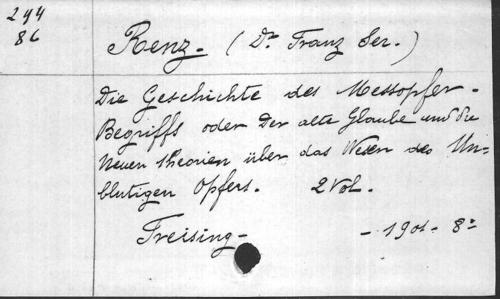 244
86
Renz. (Dr. Franz Ser.)
Die Geschichte des Messopfer-
Begriffs oder Der alte Glaube und die
Neuen theorien über das Wesen des Un-
blutigen Opfers. 2 Vol.
Freising - - 1901 - 8º